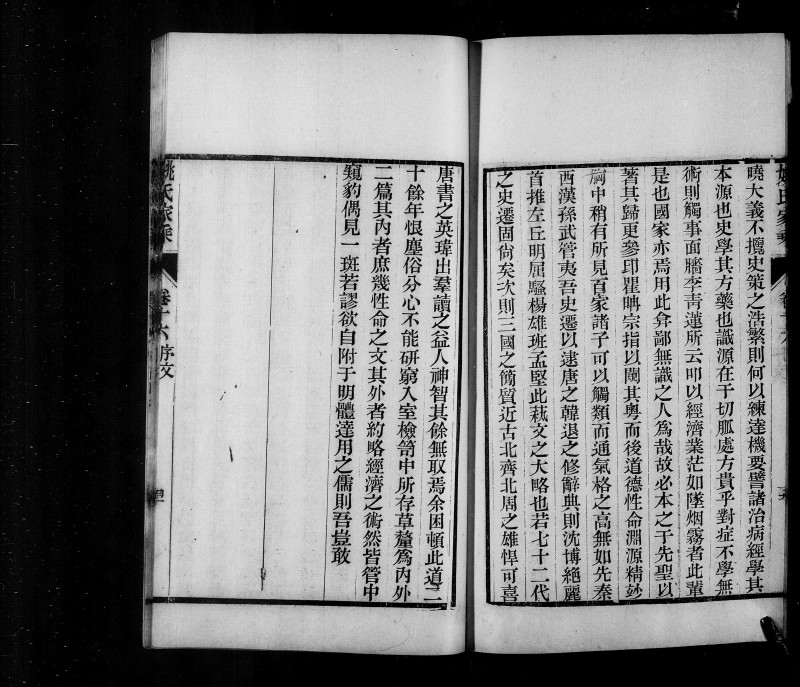 姚氏家乘
曉大義不攬史策之浩繁則何以練達機要譬諸治病經學其
本源也史學其方藥也識源在于切脈處方貴乎對症不學無
術則觸事面牆李青蓮所云叩以經濟業茫如墜烟霧者此輩
是也國家亦焉用此弇鄙無識之人爲哉故必本之于先聖以
著其歸更參印瞿曇宗指以闖其粵而後道德性命淵源精妙
胸中稍有所見百家諸子可以觸類而通氣格之高無如先秦
西漢孫武管夷吾史遷以逮唐之韓退之修辭典則沈博絕麗
首推左丘明屈騷楊雄班孟堅此蓺文之大略也若七十二代
之史遷固尙矣次則三國之簡質近古北齊北周之雄悍可喜
唐書之英瑋出羣讀之益人神智其餘無取焉余困頓此道二
十餘年恨塵俗分心不能硏窮入室檢笥中所存草釐爲內外
二篇其內者庶幾性命之文其外者約略經濟之術然皆管中
窺豹偶見一斑若謬欲自附于明體達用之儒則吾豈敢
姚氏家乘
卷十六序文